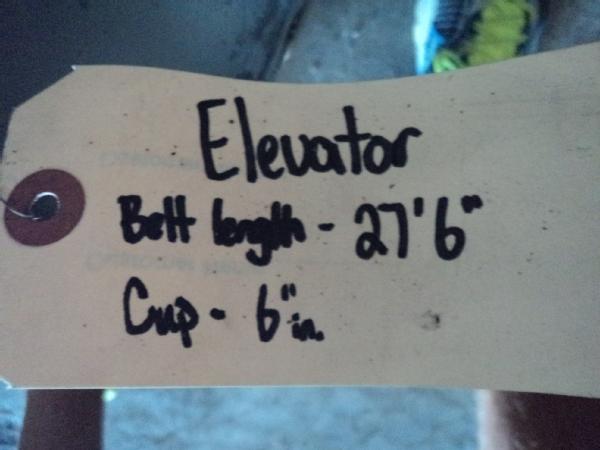 Elevator
Belt length - 27'6"
Cup - 6" in.